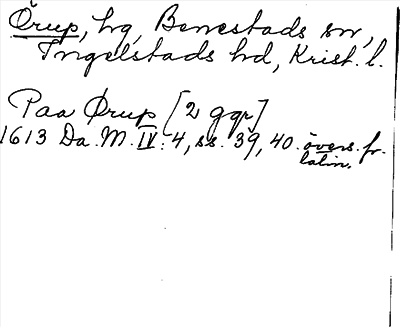 Örup, hg, Benestads sn,
Ingelstads hd, Krist. l.
Paa Ørup [2 ggr]
1613 Da. M. IV: 4, ss. 39, 40. övers. fr.
latin.